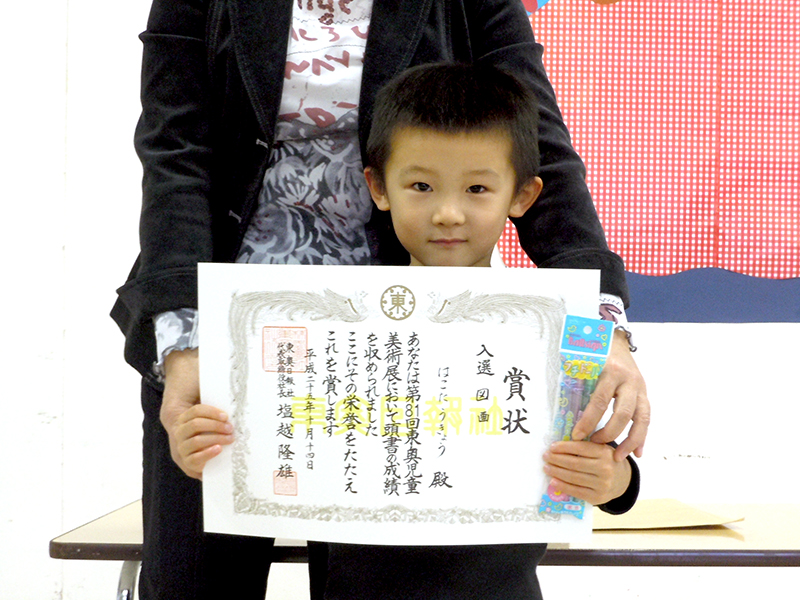 東
賞状
入選 図画
はこだ りきょう 殿
あなたは第81回東奥児童
美術展において頭書の成績
を収められました
ここにその栄誉をたたえ
これを賞します
平成二十五年十月十四日
東奥日報社
代表取締役社長 塩越隆雄